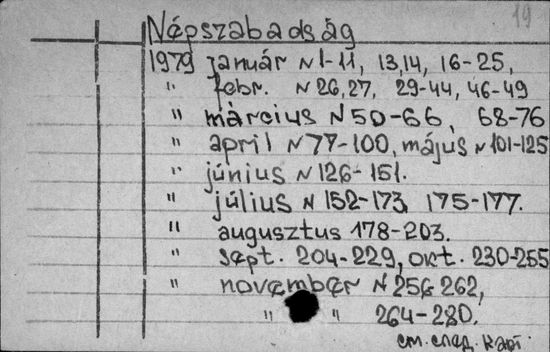 19
Népszabadság
1979 január N 1-11, 13,14, 16-25,
" febr. N 26,27, 29-44, 46-49
" március N 50-66, 68-76
" april N 77-100, május N 101-125
" június N 126-151.
" július N 152-173, 175-177.
" augusztus 178-203.
" sept. 204-229, okt. 230-255
" november N 256 262,
" " 264-280.
см. след. карт.